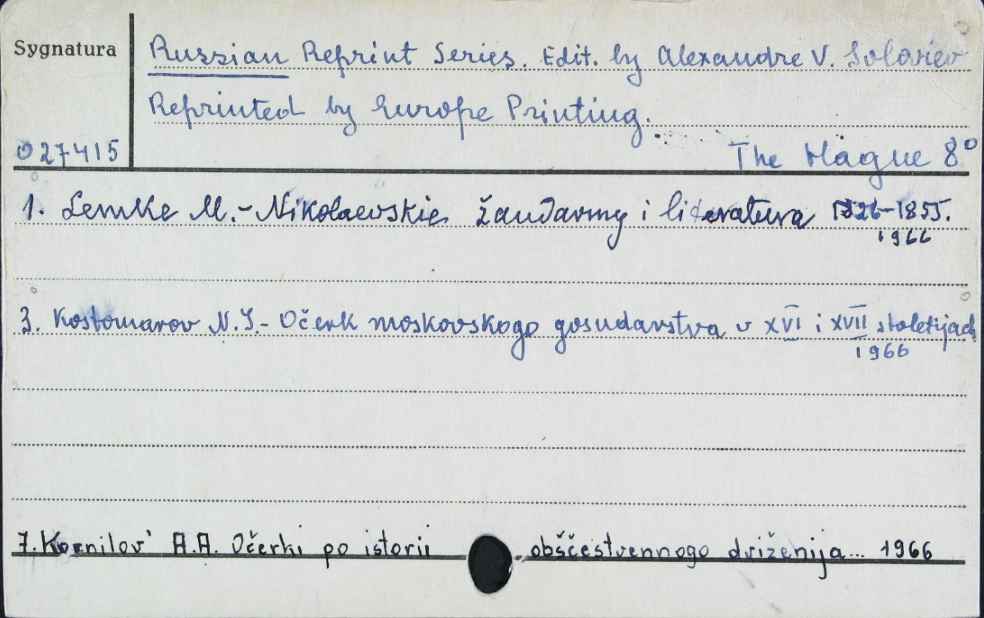 Sygnatura
Russian Reprint Series. Edit. by Alexandre V. Soloviev
Reprinted by Europe Printing.
027415
The Hague 8°
1. Lemke M. - Nikolaevskie žandarmy i literatura 1826-1855.
1966
3. Kostomarov N.I. - Očerk moskovskogo gosudarstva v XVI i XVII stoletijach
1966
7. Kornilov' A.A. Očerki po istorii obščestvennogo dviženija... 1966